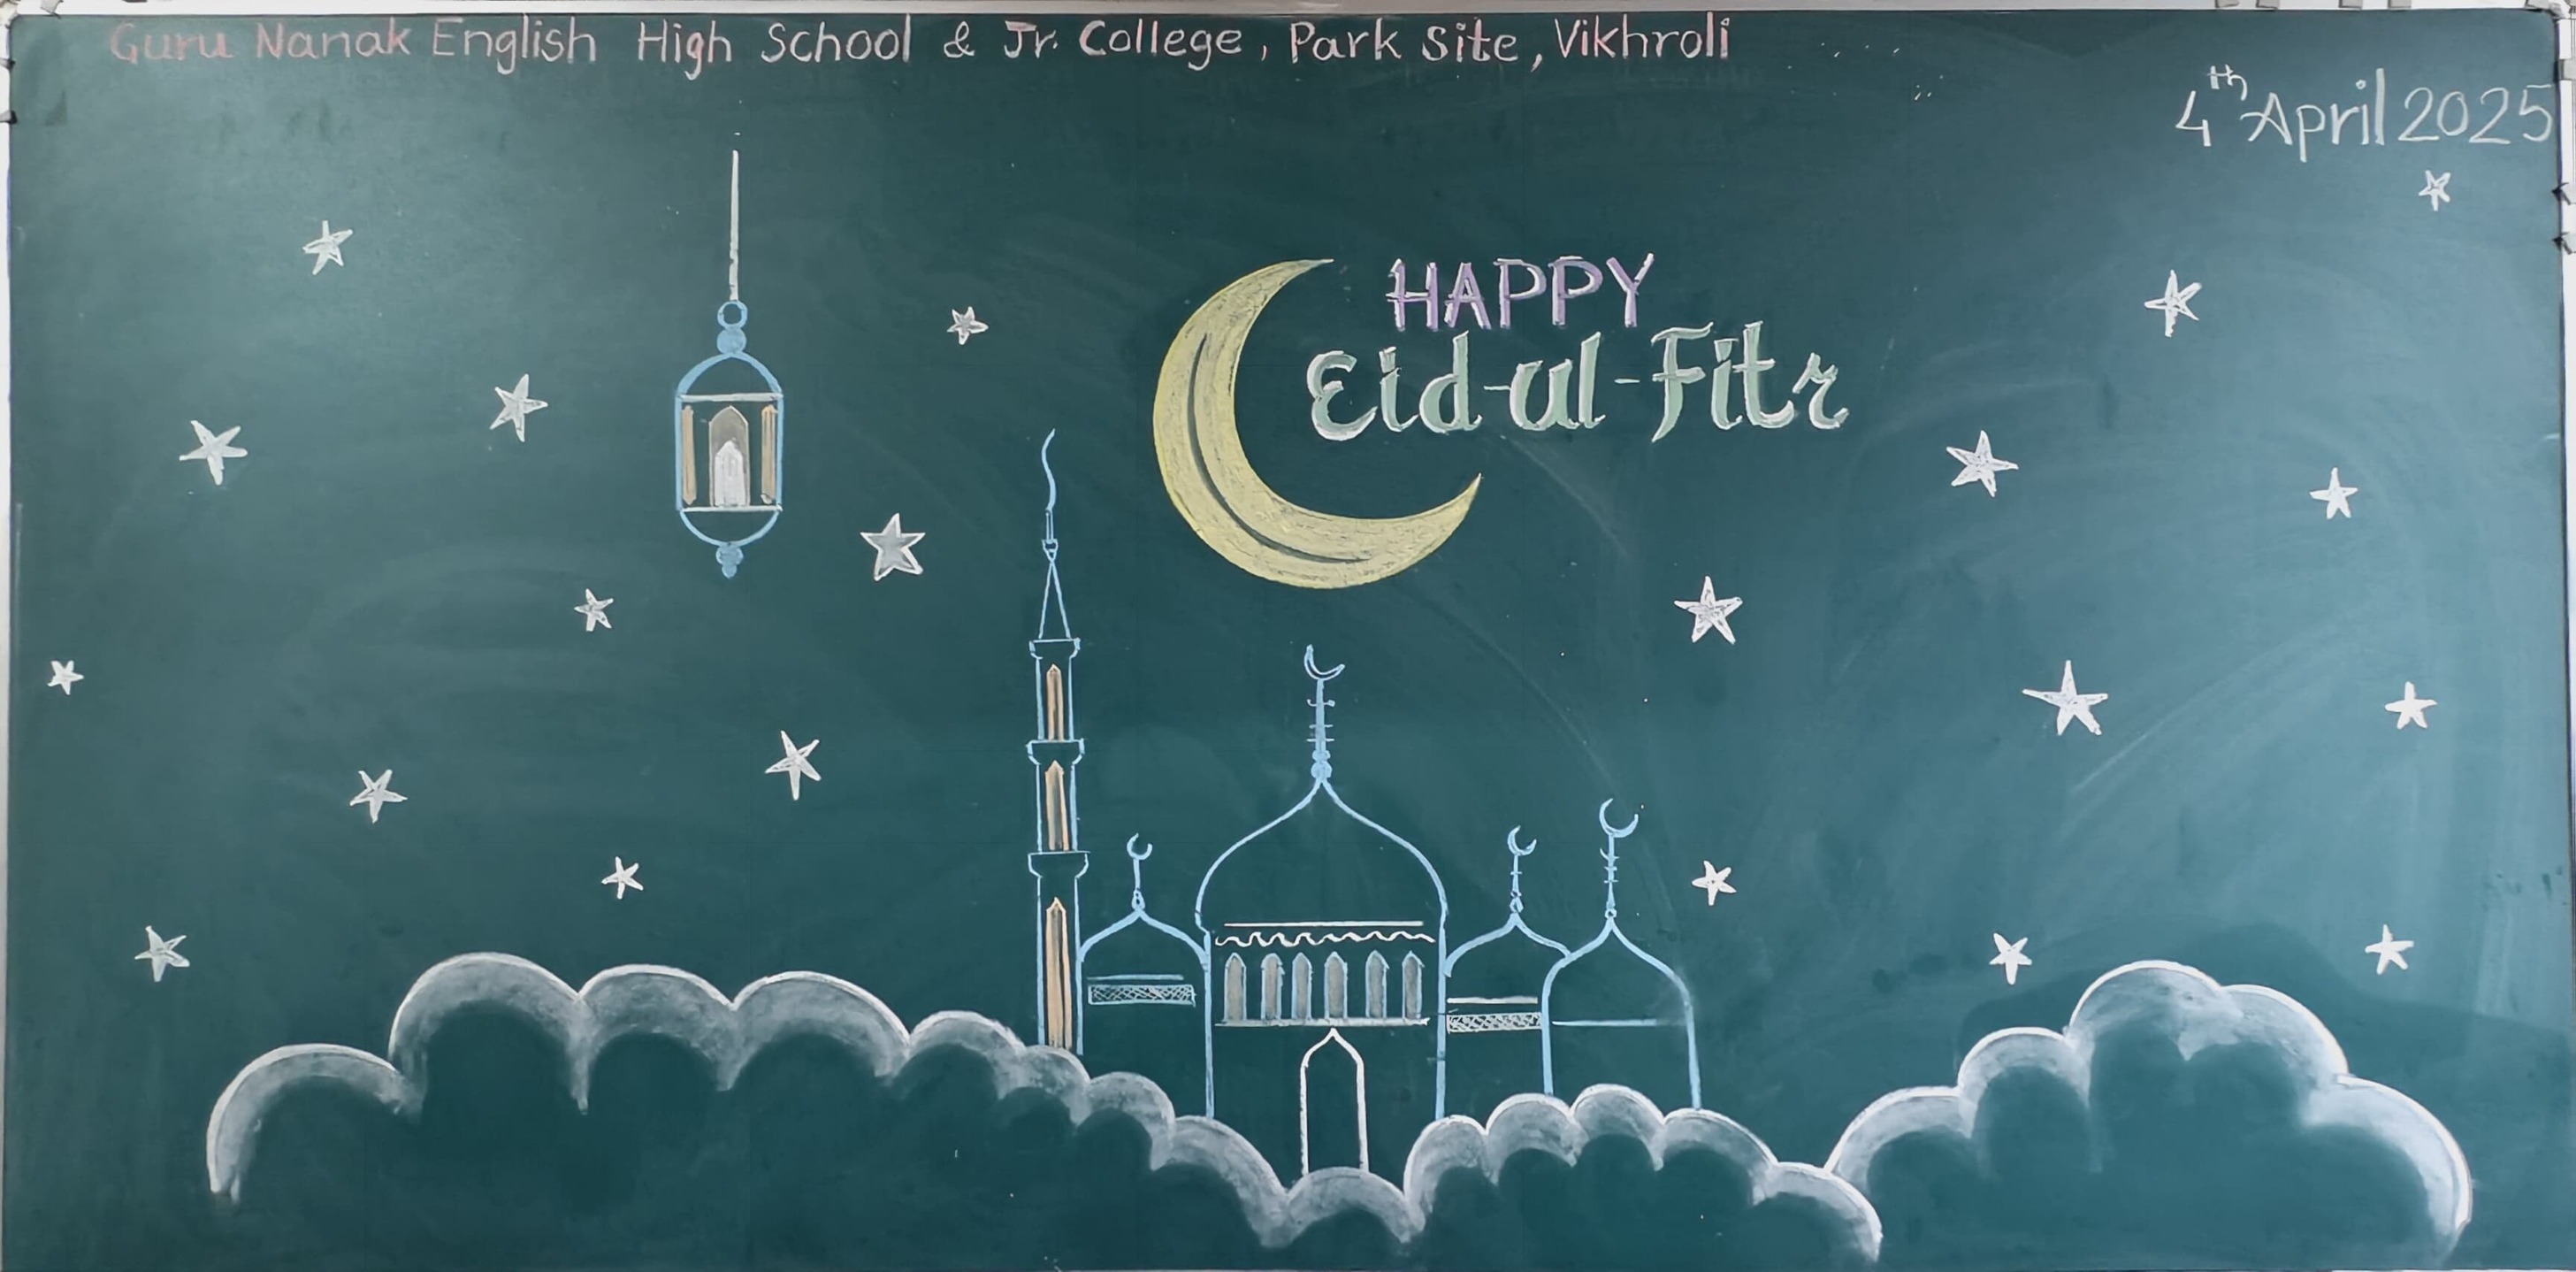 Guru Nanak English High School & Jr. College, Park Site, Vikhroli
4th April 2025
HAPPY
Eid-ul-Fitr